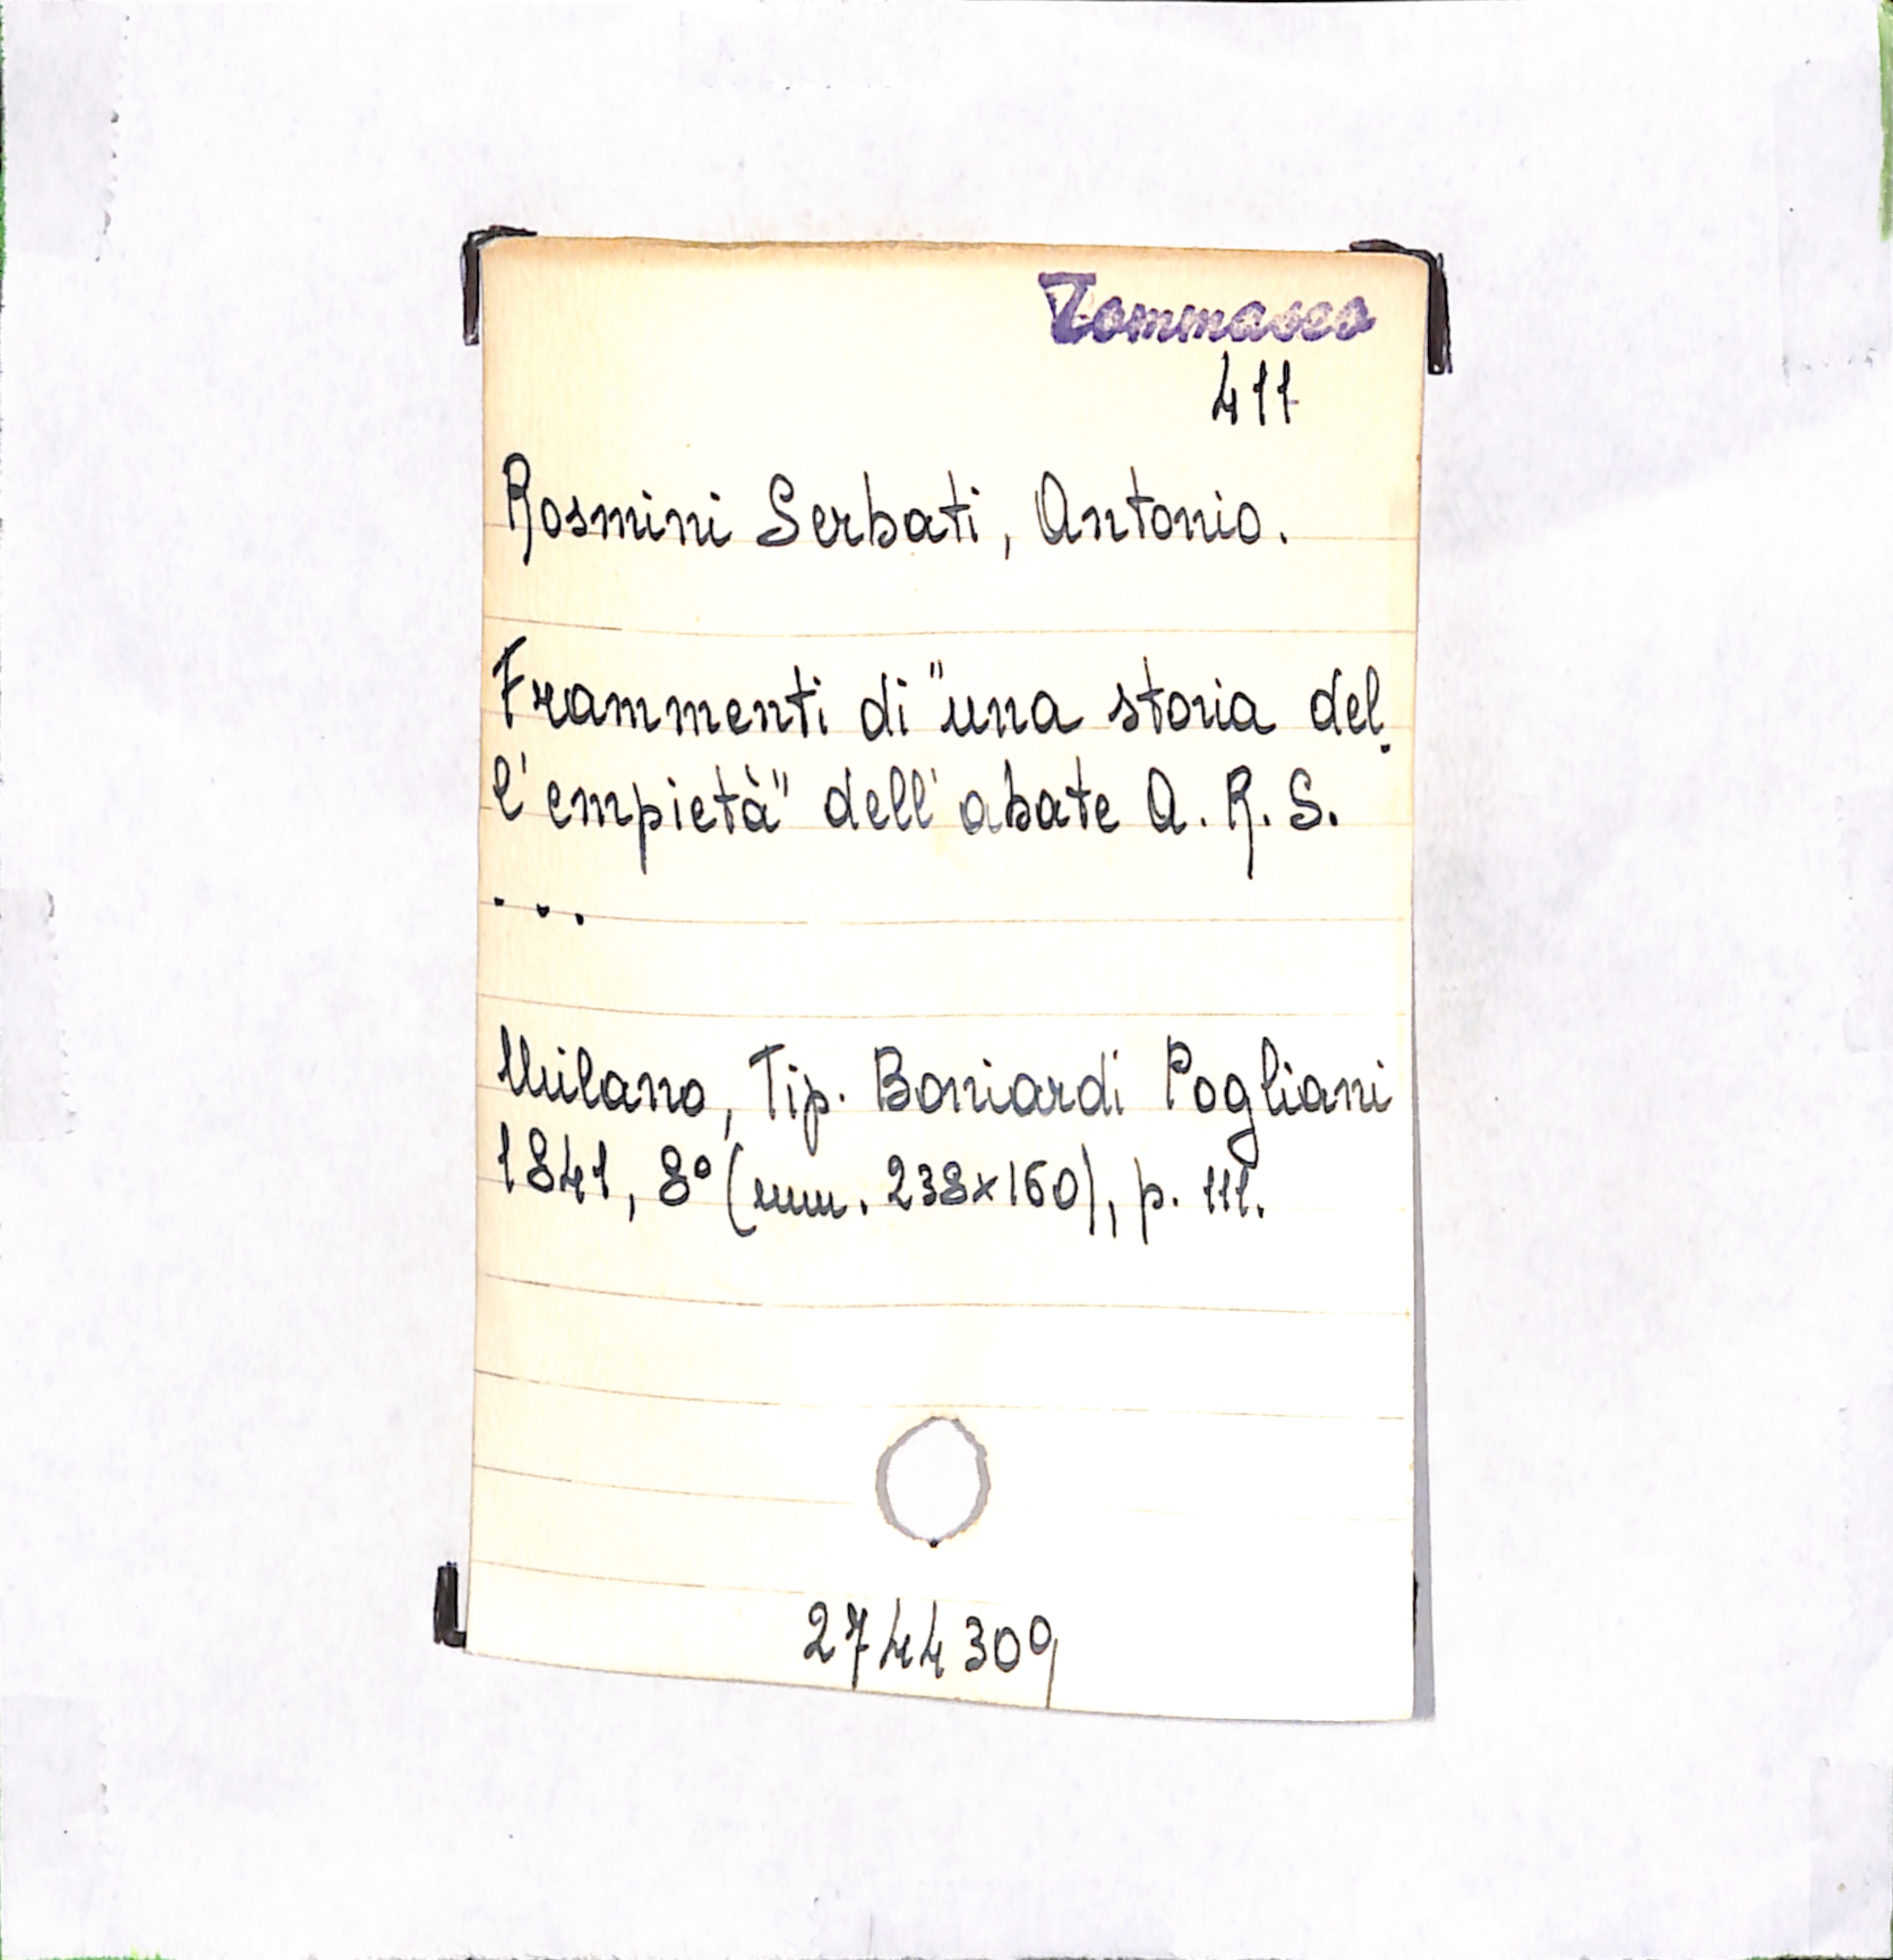 Tommaseo
411
Rosmini Serbati, Antonio.
Frammenti di "una storia del
l'empietà" dell'abate A. R. S.
...
Milano, Tip. Boniardi Pogliani
1841, 8° (mm. 238x160), p. 111.
2744309